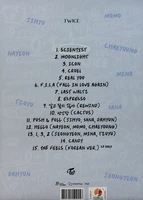 TWICE
JIHYO
MOMO
1. SCIENTIST
2. MOONLIGHT
NAYEON
CHAEYOUNG
3. ICON
4. CRUEL
5. REAL YOU
TZUYU
6. F.I.L.A (FALL IN LOVE AGAIN)
7. LAST WALTZ
8. ESPRESSO
SANA
9. (REWIND)
10. 선인장 (CACTUS)
11. PUSH & PULL (JIHYO, SANA, DAHYUN)
12. HELLO (NAYEON, MOMO, CHAEYOUNG)
13. 1, 3, 2 (JEONGYEON, MINA, TZUYU)
14. CANDY
15. THE FEELS (KOREAN VER.)
JEONGYEON